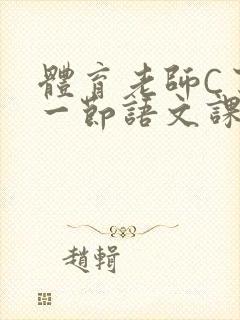 體育老師C
一節語文課
趙輯